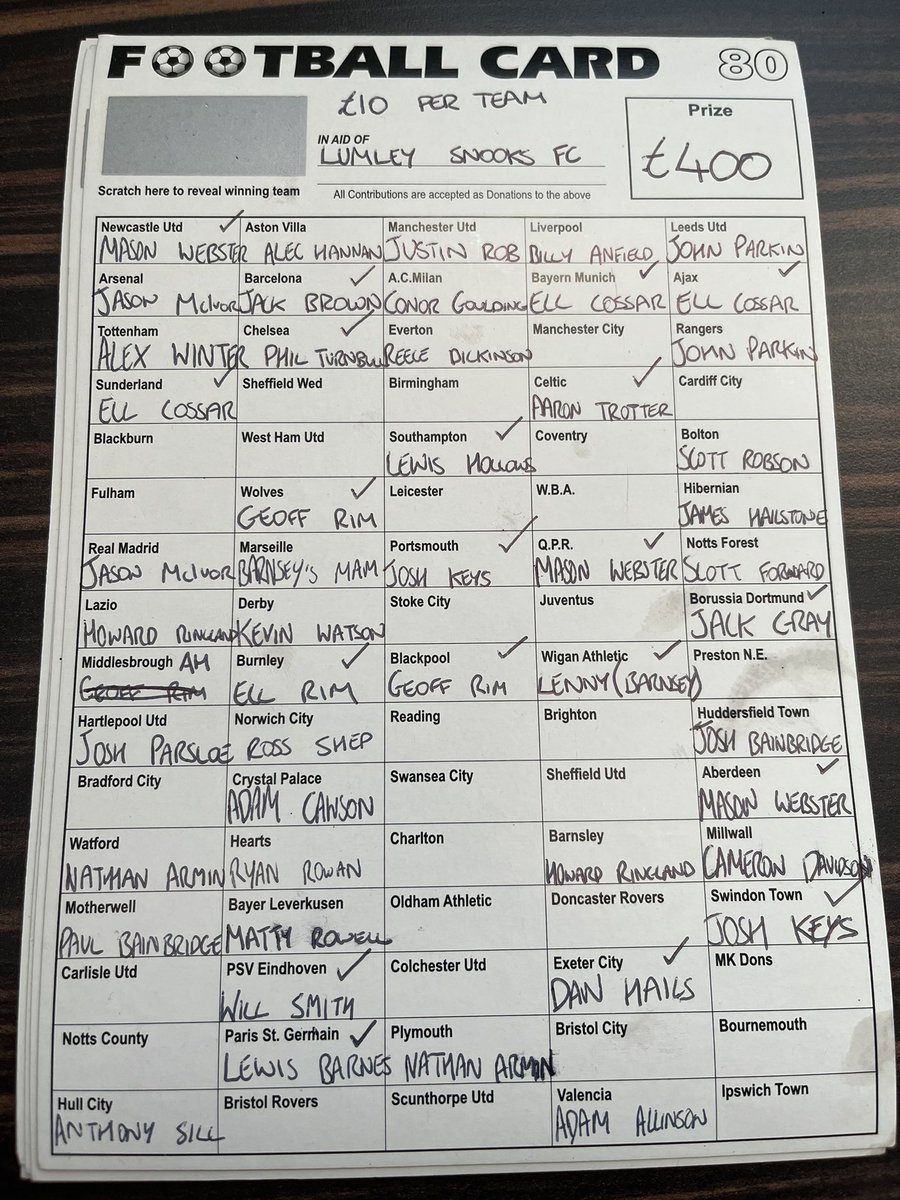 FOOTBALL CARD 80
£10 PER TEAM
Prize
IN AID OF
LUMLEY SNOOKS FC
£400
Scratch here to reveal winning team
All Contributions are accepted as Donations to the above
Newcastle Utd ✓ Aston Villa Manchester Utd Liverpool Leeds Utd
MASON WEBSTER ALEC HANNAN JUSTIN ROB BILLY ANFIELD JOHN PARKIN
Arsenal Barcelona ✓ A.C.Milan Bayern Munich ✓ Ajax ✓
JASON McIVOR JACK BROWN CONOR GOULDING ELL COSSAR ELL COSSAR
Tottenham Chelsea ✓ Everton Manchester City Rangers
ALEX WINTER PHIL TURNBULL REECE DICKINSON JOHN PARKIN
Sunderland ✓ Sheffield Wed Birmingham Celtic ✓ Cardiff City
ELL COSSAR AARON TROTTER
Blackburn West Ham Utd Southampton ✓ Coventry Bolton
LEWIS HOLLOWS SCOTT ROBSON
Fulham Wolves ✓ Leicester W.B.A. Hibernian
GEOFF RIM JAMES HAILSTONE
Real Madrid Marseille Portsmouth ✓ Q.P.R. ✓ Notts Forest
JASON McIVOR BARNSEY'S MAM JOSH KEYS MASON WEBSTER SCOTT FORWARD
Lazio Derby Stoke City Juventus Borussia Dortmund ✓
HOWARD RINGLAND KEVIN WATSON JACK GRAY
Middlesbrough AH Burnley ✓ Blackpool ✓ Wigan Athletic ✓ Preston N.E.
GEOFF RIM ELL RIM GEOFF RIM LENNY (BARNSEY)
Hartlepool Utd Norwich City Reading Brighton Huddersfield Town
JOSH PARSLOE ROSS SHEP JOSH BAINBRIDGE
Bradford City Crystal Palace Swansea City Sheffield Utd Aberdeen ✓
ADAM CAWSON MASON WEBSTER
Watford Hearts Charlton Barnsley Millwall
NATHAN ARMIN RYAN ROWAN HOWARD RINGLAND CAMERON DAVIDSON
Motherwell Bayer Leverkusen Oldham Athletic Doncaster Rovers Swindon Town ✓
PAUL BAINBRIDGE MATTY ROWELL JOSH KEYS
Carlisle Utd PSV Eindhoven ✓ Colchester Utd Exeter City ✓ MK Dons
WILL SMITH DAN HAILS
Notts County Paris St. Germain ✓ Plymouth Bristol City Bournemouth
LEWIS BARNES NATHAN ARMIN
Hull City Bristol Rovers Scunthorpe Utd Valencia Ipswich Town
ANTHONY SILL ADAM ALLINSON